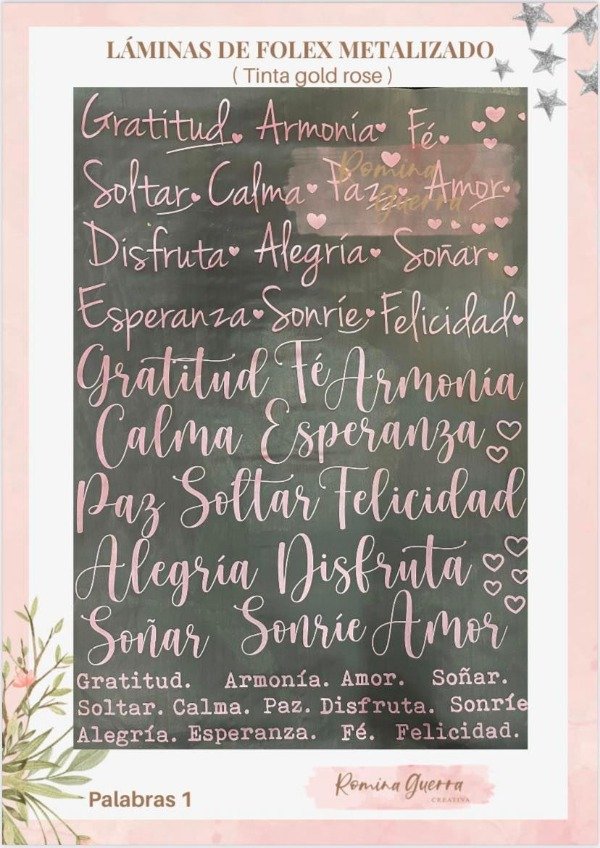 LÁMINAS DE FOLEX METALIZADO
( Tinta gold rose )
Gratitud Armonía Fé
Romina
Soltar Calma Paz Amor
Guerra
Disfruta Alegría Soñar
Esperanza Sonríe Felicidad
Gratitud Fé Armonía
Calma Esperanza
Paz Soltar Felicidad
Alegría Disfruta
Soñar Sonríe Amor
Gratitud. Armonía. Amor. Soñar.
Soltar. Calma. Paz. Disfruta. Sonríe
Alegría. Esperanza. Fé. Felicidad.
Romina Guerra
CREATIVA
Palabras 1